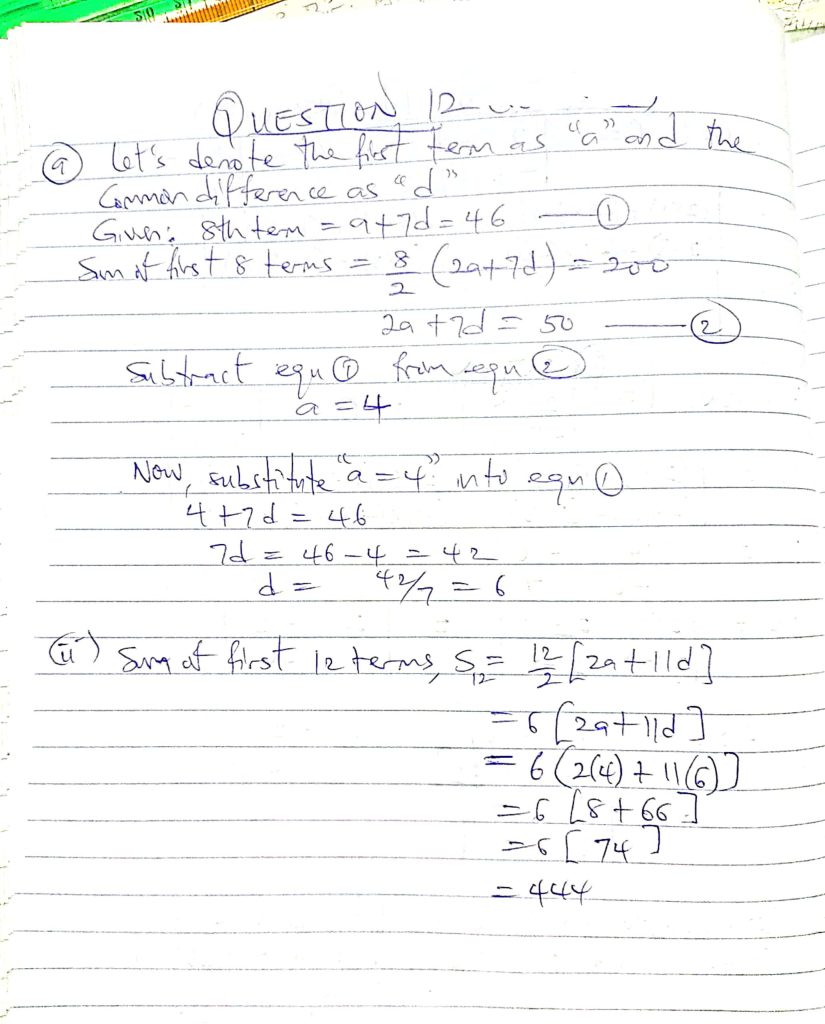 510 511
QUESTION 12
(a) Let's denote the first term as "a" and the
Common difference as "d"
Given: 8th term = a+7d = 46 —— (1)
Sum of first 8 terms = 8/2 (2a+7d) = 200
2a + 7d = 50 —— (2)
Subtract equ (1) from equ (2)
a = 4
Now, substitute "a = 4" into equ (1)
4 + 7d = 46
7d = 46 - 4 = 42
d = 42/7 = 6
(ii) Sum of first 12 terms, S₁₂ = 12/2 [2a + 11d]
= 6 [2a + 11d]
= 6 (2(4) + 11(6)]
= 6 [8 + 66]
= 6 [74]
= 444